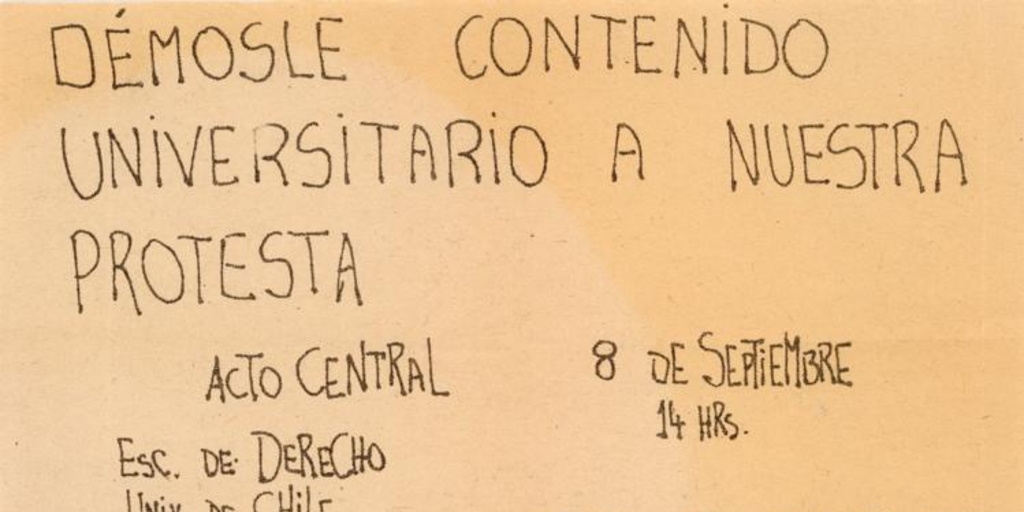 DÉMOSLE CONTENIDO
UNIVERSITARIO A NUESTRA
PROTESTA
ACTO CENTRAL 8 DE SEPTIEMBRE
14 HRS.
ESC. DE DERECHO
UNIV. DE CHILE